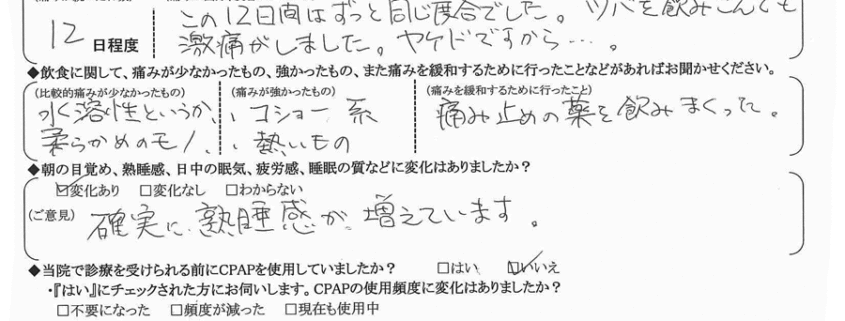 この12日間はずっと同じ度合でした。ツバを飲みこんでも
12 日程度
激痛がしました。ヤケドですから…。
◆飲食に関して、痛みが少なかったもの、強かったもの、また痛みを緩和するために行ったことなどがあればお聞かせください。
(比較的痛みが少なかったもの) (痛みが強かったもの) (痛みを緩和するために行ったこと)
水溶性というか、 、コショー系 痛み止めの薬を飲みまくった。
柔らかめのモノ。 、熱いもの
◆朝の目覚め、熟睡感、日中の眠気、疲労感、睡眠の質などに変化はありましたか?
☑変化あり □変化なし □わからない
(ご意見) 確実に、熟睡感が、増えています。
◆当院で診療を受けられる前にCPAPを使用していましたか? □はい ☑いいえ
・『はい』にチェックされた方にお伺いします。CPAPの使用頻度に変化はありましたか?
□不要になった □頻度が減った □現在も使用中